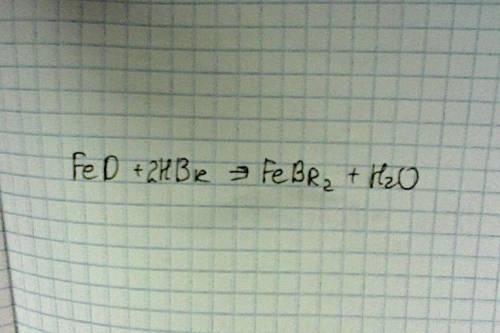 FeO + 2HBr ⇒ FeBR₂ + H₂O